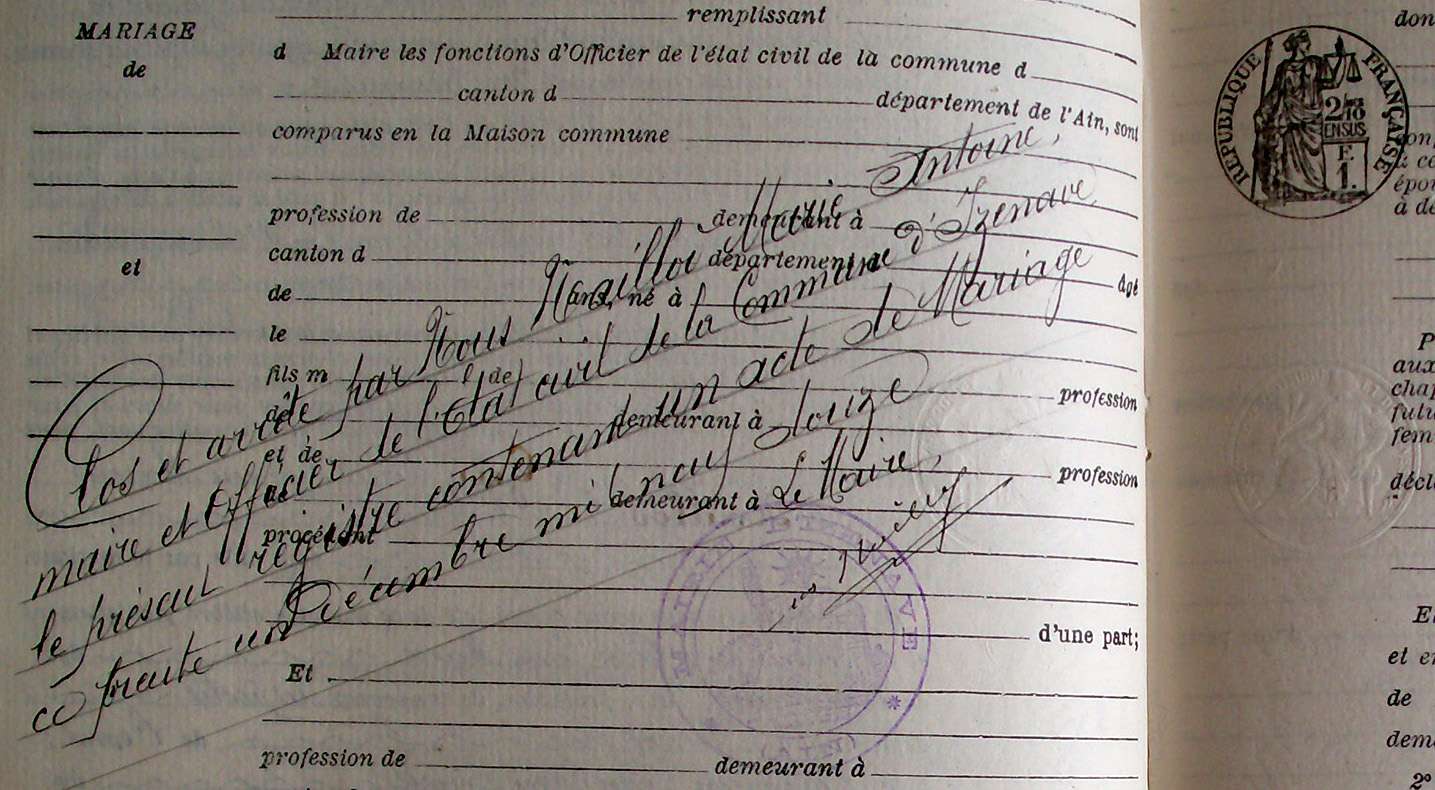 MARIAGE
de
et
remplissant
d Maire les fonctions d'Officier de l'état civil de la commune d
canton d département de l'Ain, sont
comparus en la Maison commune
profession de demeurant à
canton d département
de ans, né à âgé
le
fils m de
profession
demeurant à
et de
profession
demeurant à
procédant
d'une part;
Et
profession de demeurant à
Clos et arrêté par Nous Marie Antoine,
maire et Officier de l'Etat civil de la Commune d'Izenave
le présent registre contenant un acte de Mariage
ce trente un Décembre mil neuf douze
Le Maire,
MAIRIE D'IZENAVE
(AIN)
RÉPUBLIQUE FRANÇAISE
2/10
EN SUS
E.
1.
don
épou
à de
P
aux
chap
futu
fem
décl
Et
et en
de
dem
2°